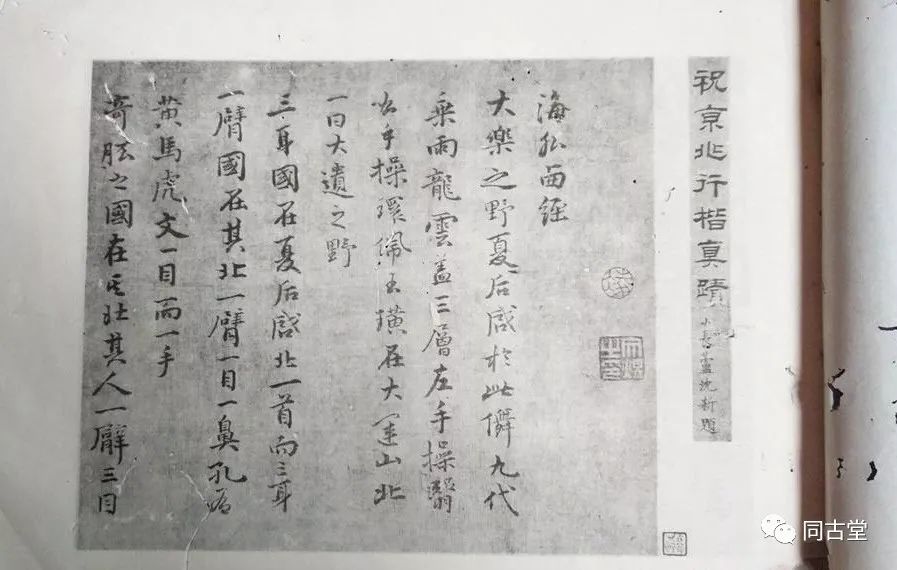 祝京兆行楷真蹟
小長蘆沈新題
海外西經
大樂之野夏后啟於此儛九代
乘兩龍雲蓋三層左手操翳
右手操環佩玉璜在大運山北
一曰大遺之野
三身國在夏后啟北一首而三身
一臂國在其北一臂一目一鼻孔有
黃馬虎文一目而一手
奇肱之國在其北其人一臂三目
同古堂